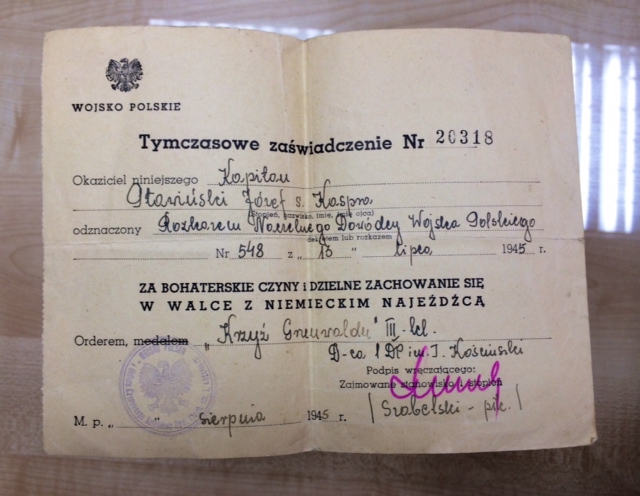 WOJSKO POLSKIE
Tymczasowe zaświadczenie Nr 20318
Okaziciel niniejszego Kapitan
Józef s. Kaspra
(stopień, nazwisko, imię, imię ojca)
odznaczony Rozkazem Naczelnego Dowódcy Wojska Polskiego
dekretem lub rozkazem
Nr 548 z „ 13 " lipca 1945 r.
ZA BOHATERSKIE CZYNY i DZIELNE ZACHOWANIE SIĘ
W WALCE Z NIEMIECKIM NAJEŹDŹCĄ
Orderem, medalem „Krzyż Grunwaldu" III-kl.
D-ca 1 DP im. T. Kościuszki
Podpis wręczającego:
Zajmowane stanowisko i stopień
M. p. „ " sierpnia 1945 r.
/ - płk. /